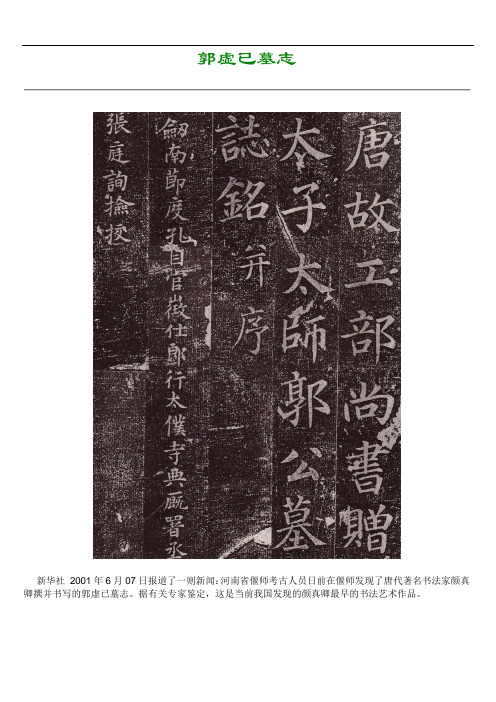 郭虚已墓志
唐故工部尚書贈
太子太師郭公墓
誌銘并序
劒南節度孔目官徵仕郎行太僕寺典厩署丞
張庭詢撿挍
新华社 2001年6月07日报道了一则新闻：河南省偃师考古人员日前在偃师发现了唐代著名书法家颜真
卿撰并书写的郭虚已墓志。据有关专家鉴定，这是当前我国发现的颜真卿最早的书法艺术作品。